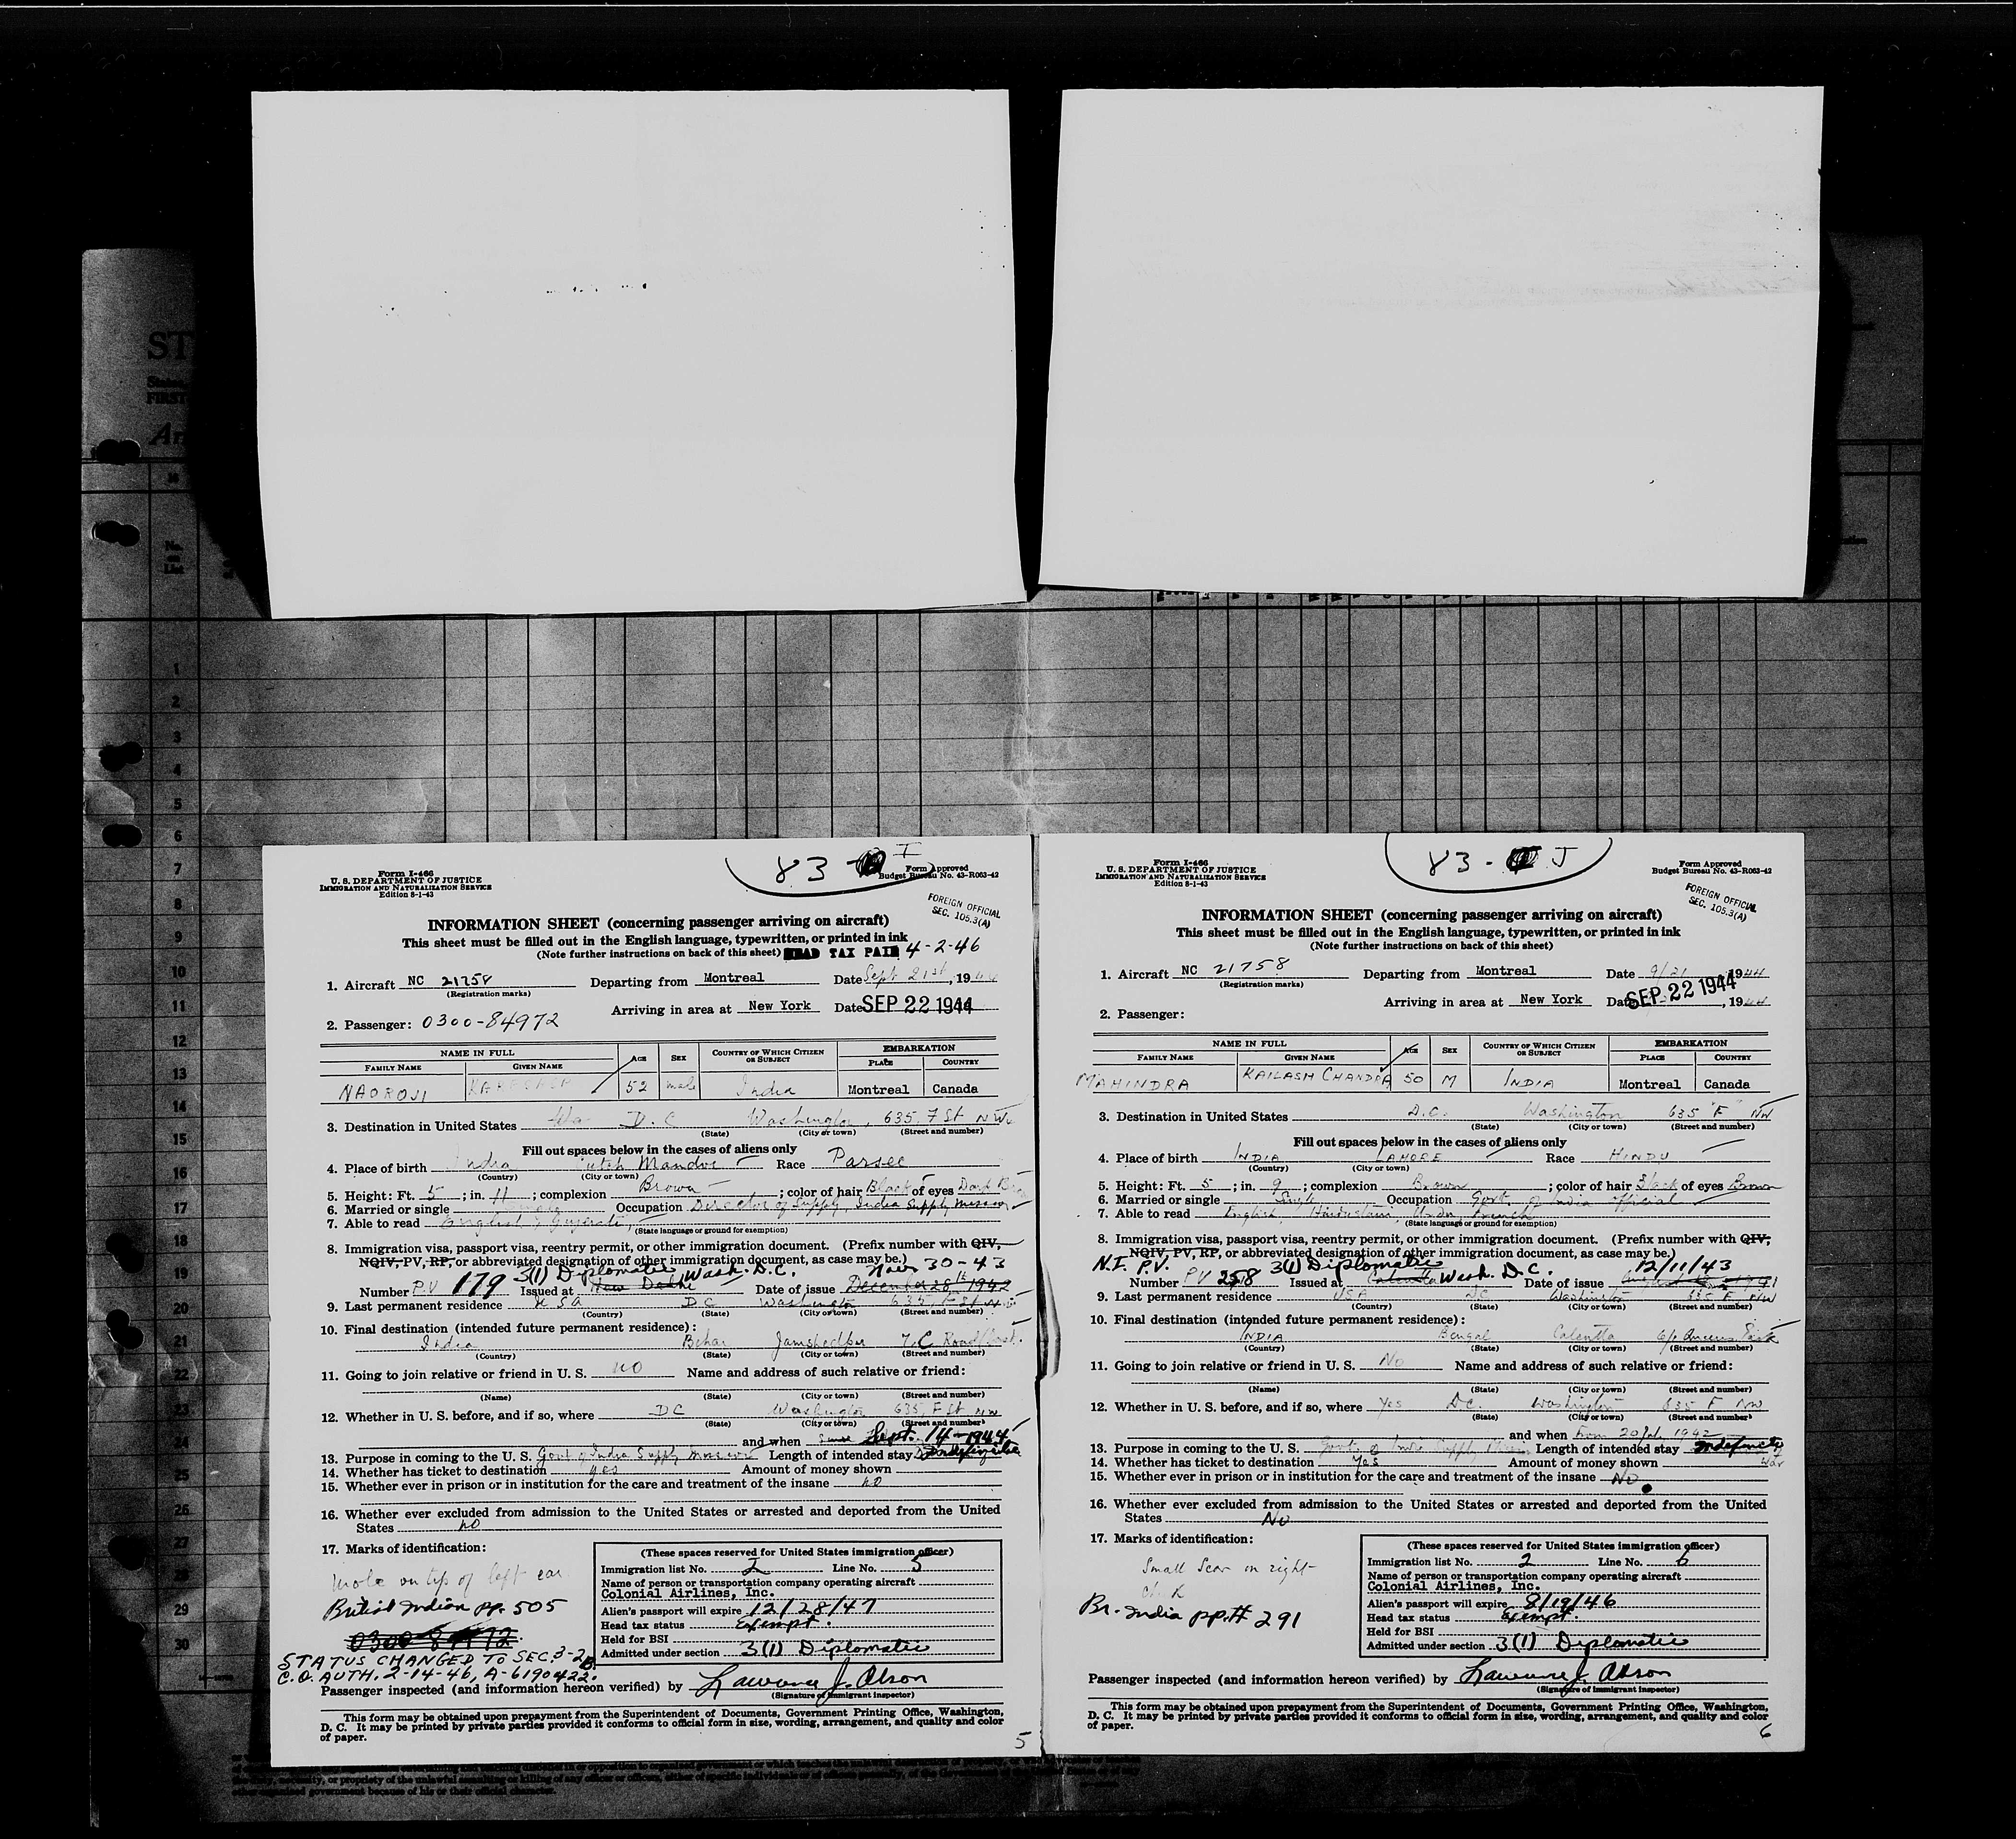 ST
FIRST
1
2
3
4
5
6
7
8
9
10
11
12
13
14
15
16
17
18
19
20
21
22
23
24
25
26
27
29
30
83 - I
Form I-466
U. S. DEPARTMENT OF JUSTICE
IMMIGRATION AND NATURALIZATION SERVICE
Edition 8-1-43
Form Approved
Budget Bureau No. 43-R063-42
FOREIGN OFFICIAL
SEC. 105.3(A)
INFORMATION SHEET (concerning passenger arriving on aircraft)
This sheet must be filled out in the English language, typewritten, or printed in ink
(Note further instructions on back of this sheet) HEAD TAX PAID 4-2-46
1. Aircraft NC 21758 Departing from Montreal Date Sept 21st, 1944
(Registration marks)
Arriving in area at New York Date SEP 22 1944
2. Passenger: 0300-84972
NAME IN FULL AGE SEX COUNTRY OF WHICH CITIZEN OR SUBJECT EMBARKATION
FAMILY NAME GIVEN NAME PLACE COUNTRY
NAOROJI 52 male India Montreal Canada
3. Destination in United States D.C Washington, 635 F St NW
(State) (City or town) (Street and number)
Fill out spaces below in the cases of aliens only
4. Place of birth India Cutch Mandvi Race Parsee
(Country) (City or town)
5. Height: Ft. 5; in. 11; complexion Brown; color of hair Black of eyes Dark
6. Married or single Occupation Director of Supply, India Supply Mission
7. Able to read English & Gujerati
(State language or ground for exemption)
8. Immigration visa, passport visa, reentry permit, or other immigration document. (Prefix number with QIV,
NQIV, PV, RP, or abbreviated designation of other immigration document, as case may be.)
3(1) Diplomatic Wash. D.C. Nov 30-43
Number PV 179 Issued at New Delhi Date of issue December 28th 1942
9. Last permanent residence USA DC Washington 635 F St
(Country) (State) (City or town) (Street and number)
10. Final destination (intended future permanent residence):
India Behar Jamshedpur Road
(Country) (State) (City or town) (Street and number)
11. Going to join relative or friend in U. S. no Name and address of such relative or friend:
(Name) (State) (City or town) (Street and number)
12. Whether in U. S. before, and if so, where DC Washington 635 F St NW
(State) (City or town) (Street and number)
and when Sept. 14-1944
13. Purpose in coming to the U. S. Govt of India Supply Mission Length of intended stay Indefinite
14. Whether has ticket to destination yes Amount of money shown
15. Whether ever in prison or in institution for the care and treatment of the insane no
16. Whether ever excluded from admission to the United States or arrested and deported from the United
States no
17. Marks of identification:
mole on tip of left ear
British Indian pp. 505
0300-84972
STATUS CHANGED TO SEC. 3-2B
C.O. AUTH. 2-14-46, A-6190422.
(These spaces reserved for United States immigration officer)
Immigration list No. 2 Line No. 5
Name of person or transportation company operating aircraft
Colonial Airlines, Inc.
Alien's passport will expire 12/28/47
Head tax status Exempt.
Held for BSI
Admitted under section 3(1) Diplomatic
Passenger inspected (and information hereon verified) by Lawrence J. Alson
(Signature of immigrant inspector)
This form may be obtained upon prepayment from the Superintendent of Documents, Government Printing Office, Washington,
D. C. It may be printed by private parties provided it conforms to official form in size, wording, arrangement, and quality and color
of paper.
5
83 - J
Form I-466
U. S. DEPARTMENT OF JUSTICE
IMMIGRATION AND NATURALIZATION SERVICE
Edition 8-1-43
Form Approved
Budget Bureau No. 43-R063-42
FOREIGN OFFICIAL
SEC. 105.3(A)
INFORMATION SHEET (concerning passenger arriving on aircraft)
This sheet must be filled out in the English language, typewritten, or printed in ink
(Note further instructions on back of this sheet)
1. Aircraft NC 21758 Departing from Montreal Date 9/21 1944
(Registration marks)
Arriving in area at New York Date SEP 22 1944, 1944
2. Passenger:
NAME IN FULL AGE SEX COUNTRY OF WHICH CITIZEN OR SUBJECT EMBARKATION
FAMILY NAME GIVEN NAME PLACE COUNTRY
MAHINDRA KAILASH CHANDRA 50 M INDIA Montreal Canada
3. Destination in United States D.C. Washington 635 "F" NW
(State) (City or town) (Street and number)
Fill out spaces below in the cases of aliens only
4. Place of birth INDIA LAHORE Race HINDU
(Country) (City or town)
5. Height: Ft. 5; in. 9; complexion Brown; color of hair Black of eyes Brown
6. Married or single Single Occupation Govt. of India official
7. Able to read English, Hindustani, Urdu, French
(State language or ground for exemption)
8. Immigration visa, passport visa, reentry permit, or other immigration document. (Prefix number with QIV,
NQIV, PV, RP, or abbreviated designation of other immigration document, as case may be.)
N.I. P.V. 3(1) Diplomatic 12/11/43
Number PV 258 Issued at Calcutta Wash. D.C. Date of issue
9. Last permanent residence USA DC Washington 635 F NW
(Country) (State) (City or town) (Street and number)
10. Final destination (intended future permanent residence):
INDIA Bengal Calcutta Queens Park
(Country) (State) (City or town) (Street and number)
11. Going to join relative or friend in U. S. No Name and address of such relative or friend:
(Name) (State) (City or town) (Street and number)
12. Whether in U. S. before, and if so, where Yes D.C. Washington 635 F NW
(State) (City or town) (Street and number)
and when from 20 July 1942
13. Purpose in coming to the U. S. Govt. of India Supply Mission Length of intended stay Indefinite
war
14. Whether has ticket to destination Yes Amount of money shown
15. Whether ever in prison or in institution for the care and treatment of the insane No
16. Whether ever excluded from admission to the United States or arrested and deported from the United
States No
17. Marks of identification:
Small Scar on right
cheek
Br. India pp.# 291
(These spaces reserved for United States immigration officer)
Immigration list No. 2 Line No. 6
Name of person or transportation company operating aircraft
Colonial Airlines, Inc.
Alien's passport will expire 8/19/46
Head tax status Exempt.
Held for BSI
Admitted under section 3(1) Diplomatic
Passenger inspected (and information hereon verified) by Lawrence J. Alson
(Signature of immigrant inspector)
This form may be obtained upon prepayment from the Superintendent of Documents, Government Printing Office, Washington,
D. C. It may be printed by private parties provided it conforms to official form in size, wording, arrangement, and quality and color
of paper.
6